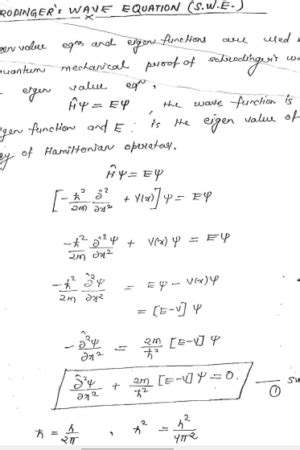 RODINGER'S WAVE EQUATION (S.W.E.)
value eqns and eigen functions are used
mechanical proof of schrodinger's
eigen value eqn,
Ĥψ = Eψ, the wave function is
function and E is the eigen value of
of Hamiltonian operator.
Ĥψ = Eψ
[-ħ²/2m ∂²/∂x² + V(x)] ψ = Eψ
-ħ²/2m ∂²ψ/∂x² + V(x)ψ = Eψ
-ħ²/2m ∂²ψ/∂x² = Eψ - V(x)ψ
= [E-V] ψ
-∂²ψ/∂x² = 2m/ħ² [E-V] ψ
∂²ψ/∂x² + 2m/ħ² [E-V] ψ = 0. — ①
ħ = h/2π , ħ² = h²/4π²